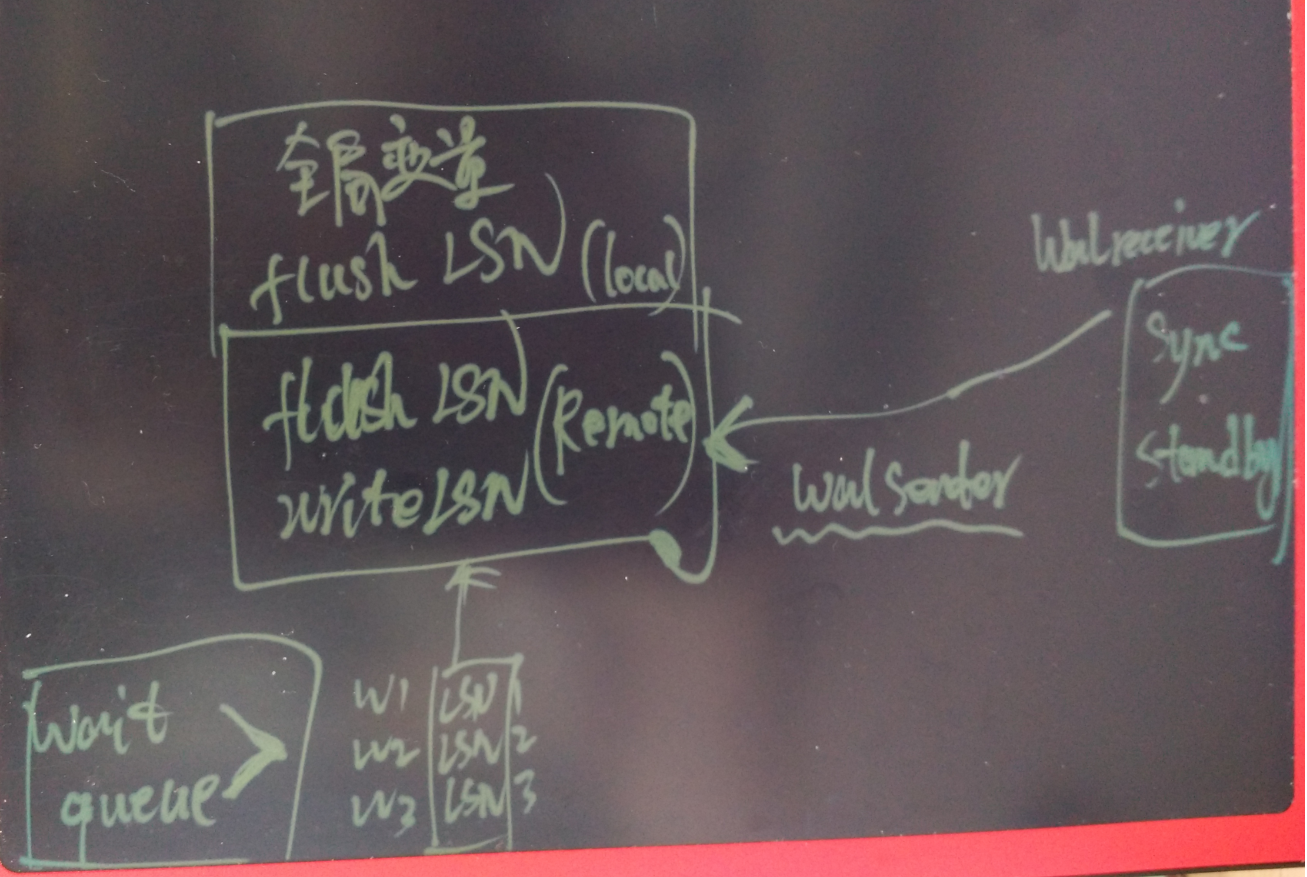 全局变量
flush LSN (local)
flush LSN
write LSN (Remote)
Walreceiver
Sync
standby
wal sender
wait
queue
W1 LSN 1
W2 LSN 2
W3 LSN 3